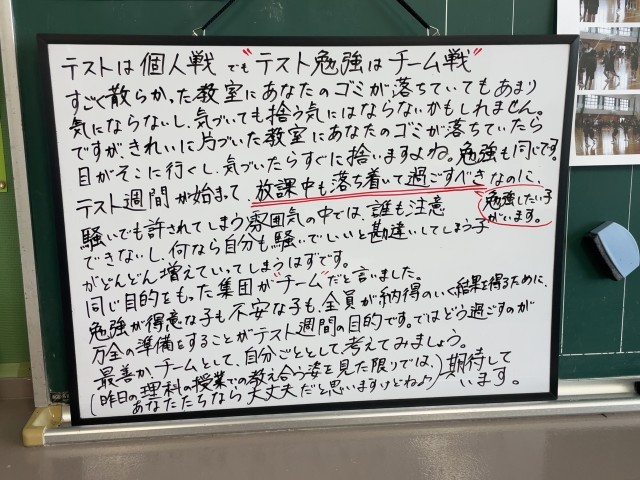 テストは個人戦 でも"テスト勉強はチーム戦"
すごく散らかった教室にあなたのゴミが落ちていてもあまり
気にならないし、気づいても拾う気にはならないかもしれません。
ですが、きれいに片づいた教室にあなたのゴミが落ちていたら
目がそこに行くし、気づいたらすぐに拾いますよね。勉強も同じです。
テスト週間が始まって、放課中も落ち着いて過ごすべきなのに、
騒いでも許されてしまう雰囲気の中では、誰も注意
勉強したい子
がいます。
できないし、何なら自分も騒いでいいと勘違いしてしまう子
がどんどん増えていってしまうはずです。
同じ目的をもった集団が"チーム"だと言いました。
勉強が得意な子も不安な子も、全員が納得のいく結果を得るために、
万全の準備をすることがテスト週間の目的です。ではどう過ごすのが
最善か、チームとして、自分ごととして考えてみましょう。
(昨日の理科の授業での教え合う姿を見た限りでは、
あなたたちなら大丈夫だと思いますけどねょ)
期待して
います。